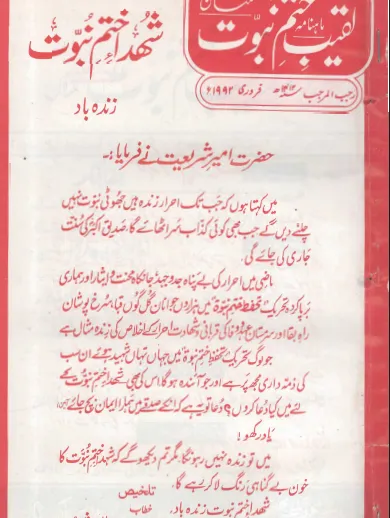 ماہنامہ نقیب ختم نبوّت
رجب المرجب ۱۴۱۲ھ فروری ۱۹۹۲ء
شہداءِ ختم نبوّت
زندہ باد
حضرت امیر شریعت نے فرمایا:۔
میں کہتا ہوں کہ جب تک احرار زندہ ہیں جھوٹی نبوت نہیں
چلنے دیں گے جب بھی کوئی کذاب سر اٹھائے گا، صدیق اکبر کی سنت
جاری کی جائے گی۔
ماضی میں احرار کی بے پناہ جدوجہد جانکاہ محنت و ایثار اور ہماری
برپا کردہ تحریک تحفظ ختم نبوۃ میں ہزاروں جوانان گل گوں قبا، سرخ پوشان
راہ بقا اور سرمستان عہد وفا کی قربانی و شہادت احرار کے اخلاص کی زندہ مثال ہے
جو لوگ تحریک تحفظ ختم نبوۃ میں جہاں تہاں شہید ہوئے ان سب
کی ذمہ داری مجھ پر ہے اور جو آئندہ ہوگا اس کی بھی شہداءِ ختم نبوت کے
لئے میں کیا دعا کروں؟ دعا تو یہ ہے کہ انکے صدقے میں ہمارا ایمان بچ جائے
یاد رکھو!
میں تو زندہ نہیں رہوں گا، مگر تم دیکھو گے کہ شہداء ختم نبوت کا
خون بے گناہی رنگ لا کر رہے گا۔
شہداءِ ختم نبوت زندہ باد۔
تلخیص
خطاب